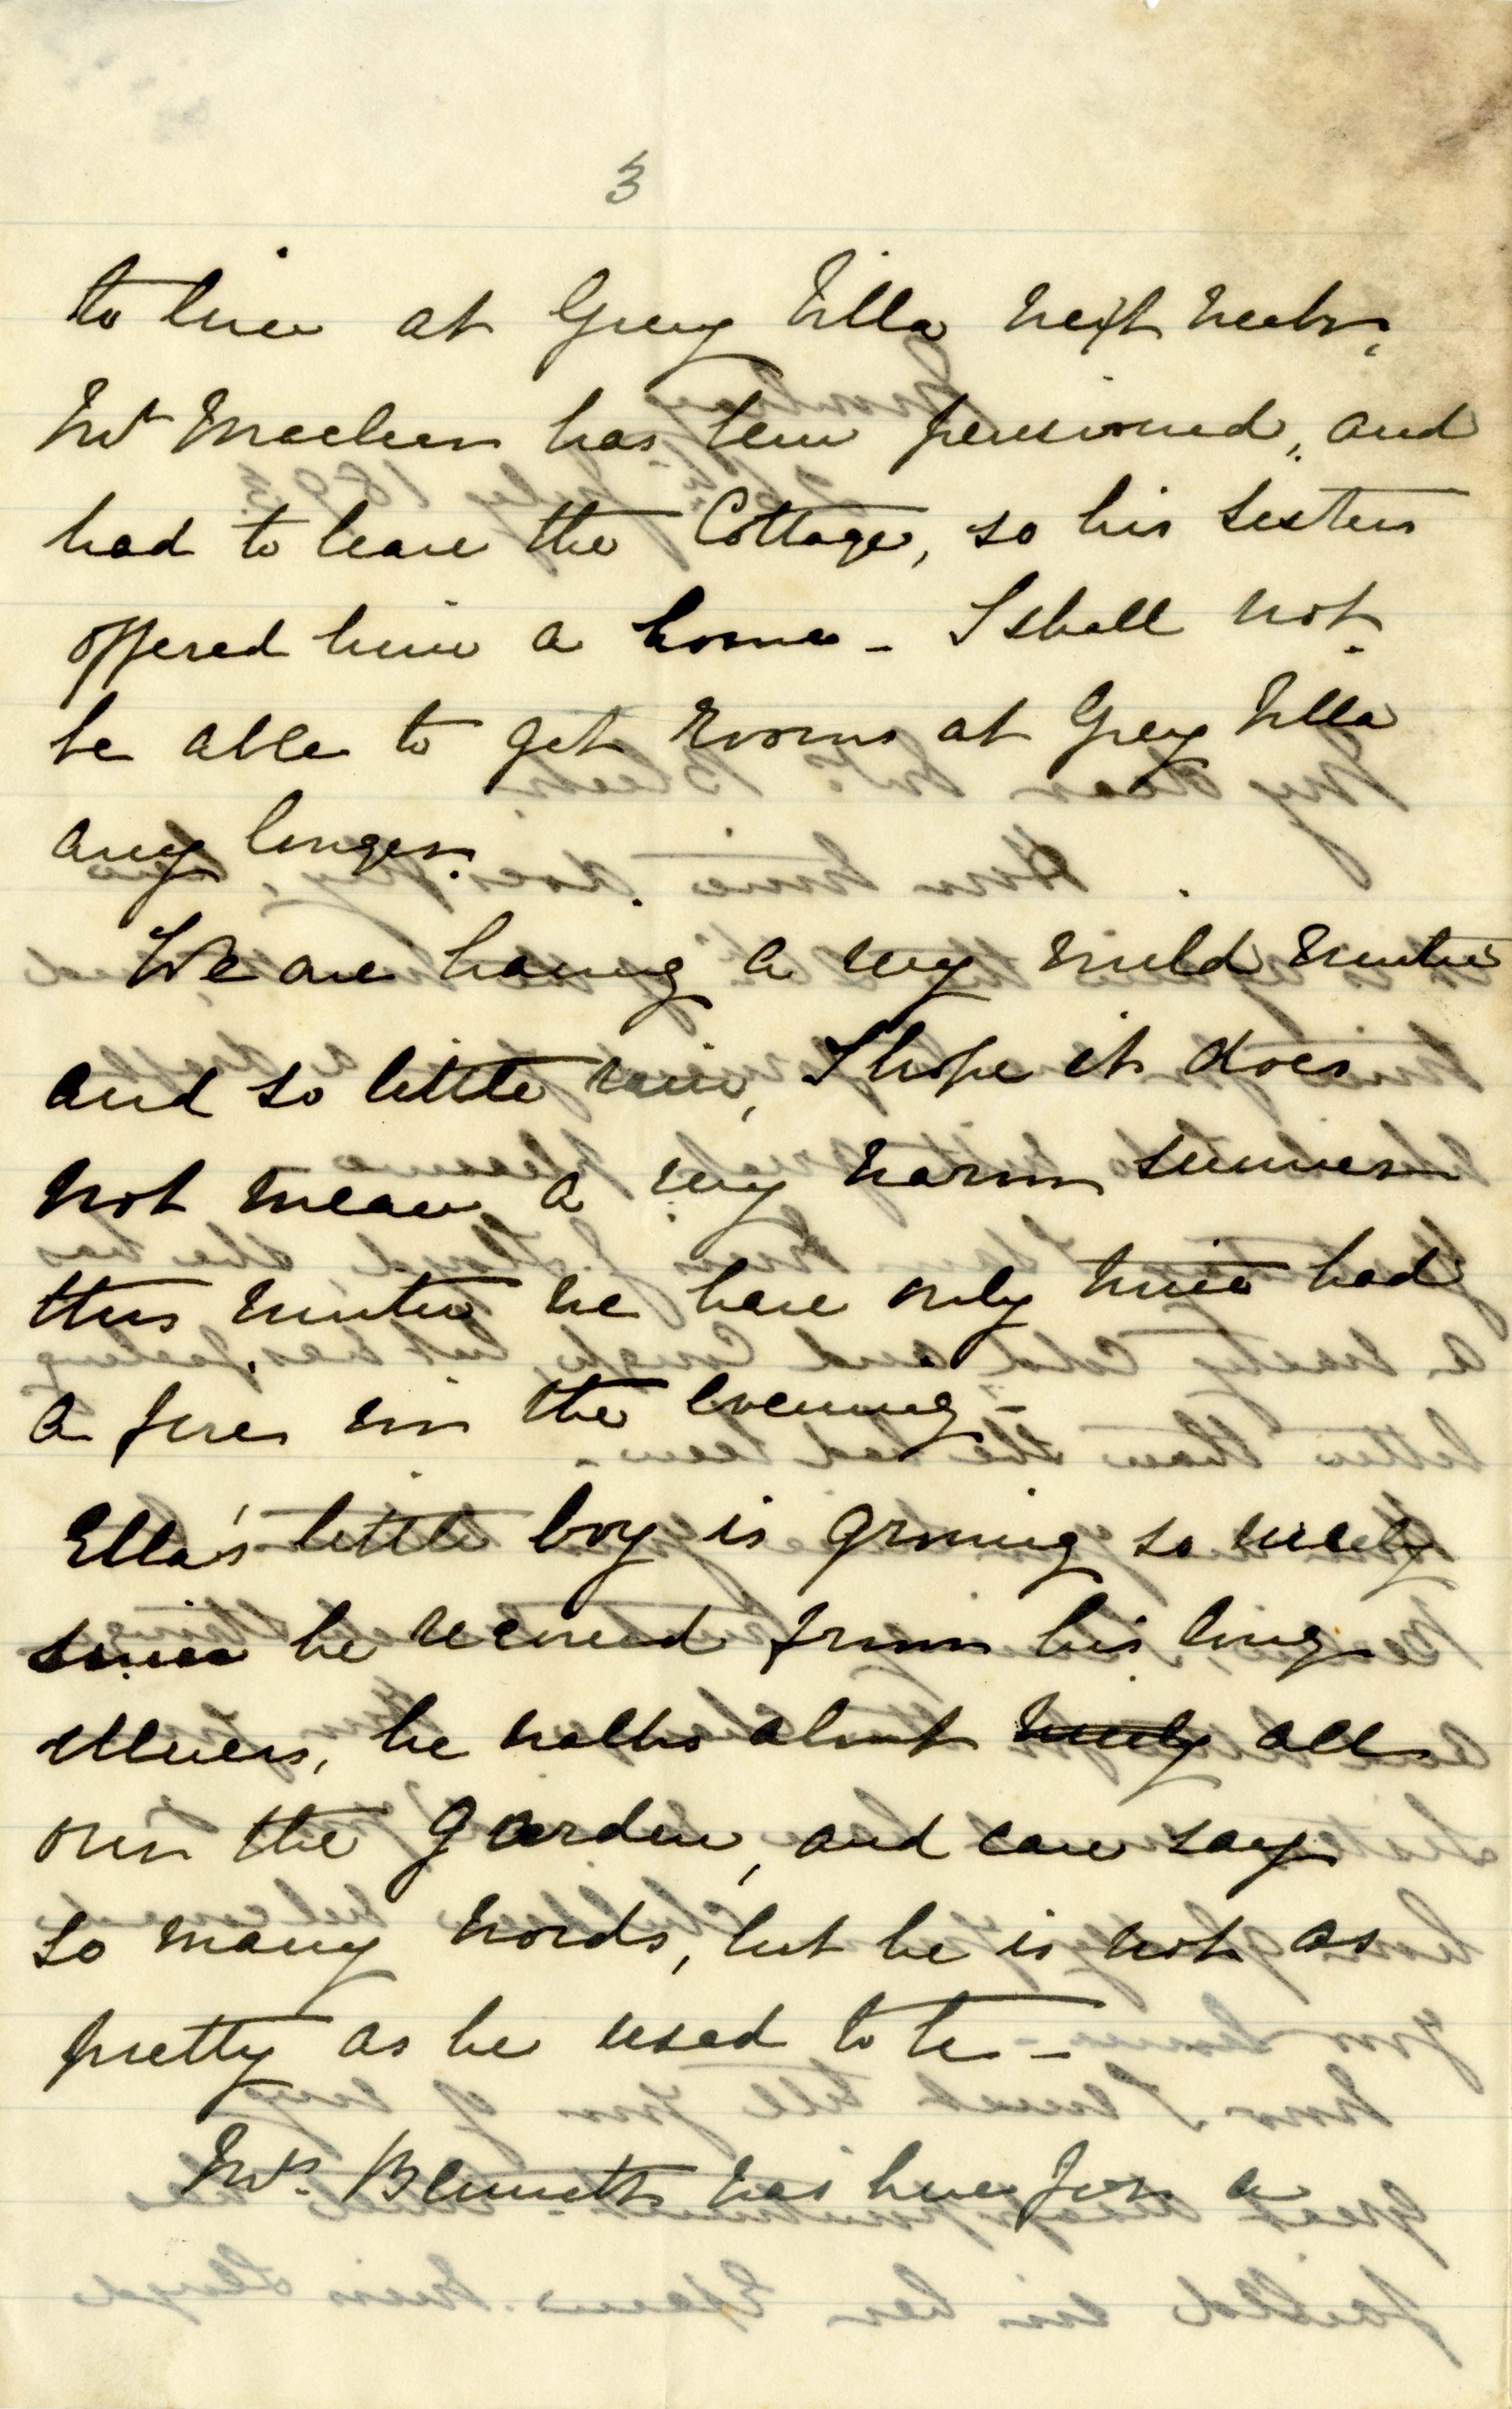 3
to live at Grey Villa next week,
Mr has been pensioned, and
had to leave the Cottage, so his sisters
offered him a home - I shall not
be able to get rooms at Grey Villa
any longer.
We are having a very mild winter
and so little rain, I hope it does
not mean a very warm summer
this winter we have only twice had
a fire in the evening -
Ella's little boy is growing so nicely
since he recovered from his long
illness, he walks about nicely all
over the garden, and can say
so many words, but he is not as
pretty as he used to be -
Mrs. was here for a